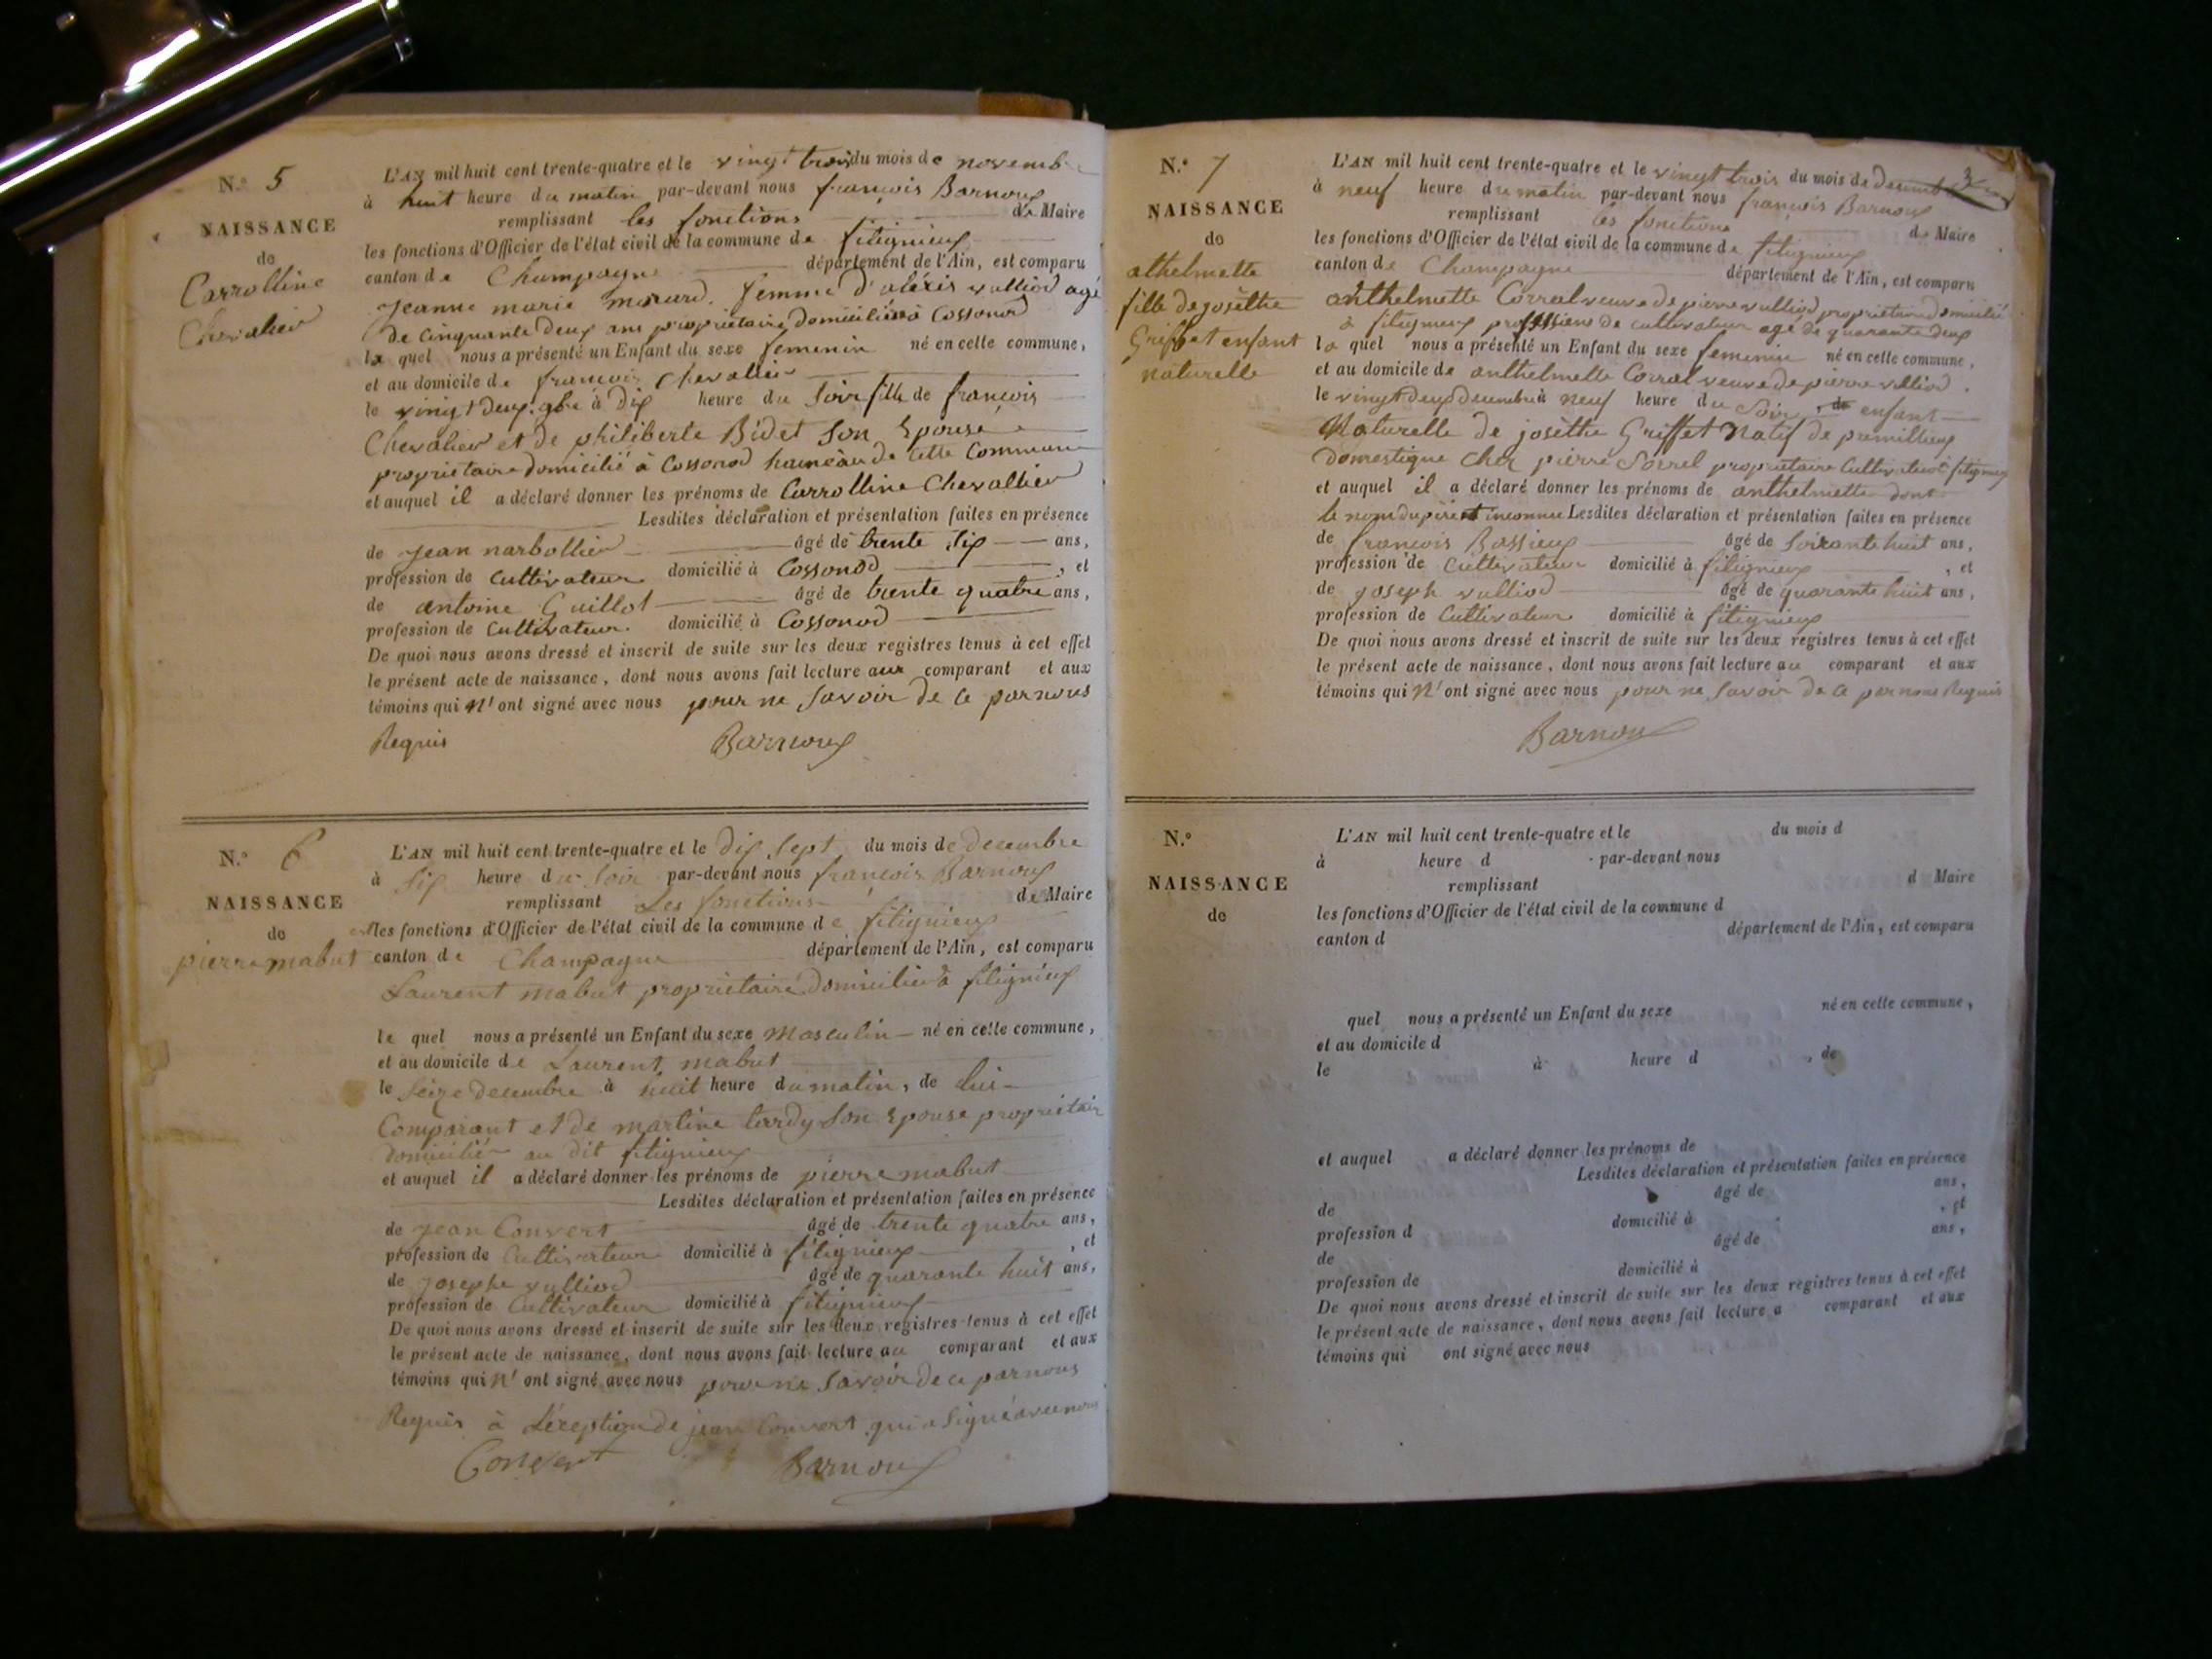 N.° 5
NAISSANCE
de
Carrolline
Chevalier
L'AN mil huit cent trente-quatre et le vingt trois du mois de novemb
à huit heure du matin par-devant nous françois Barnoux
remplissant les fonctions de Maire
les fonctions d'Officier de l'état civil de la commune de fitignieux
canton de Champagne département de l'Ain, est comparu
Jeanne marie morard femme d'alexis vulliod agé
de Cinquante Deux ans propriétaire Domicilié à Cossonod
la quel nous a présenté un Enfant du sexe femenin né en cette commune,
et au domicile de françois Chevallier
le vingt Deux 9bre à Dix heure du Soir fille de françois
Chevalier et de philiberte Bidet Son Epouse
propriétaire domicilié à Cossonod hameau de cette Commune
et auquel il a déclaré donner les prénoms de Carrolline Chevallier
Lesdites déclaration et présentation faites en présence
de Jean narbollier âgé de trente Six ans,
profession de Cultivateur domicilié à Cossonod , et
de antoine Guillot âgé de trente quatre ans,
profession de Cultivateur domicilié à Cossonod
De quoi nous avons dressé et inscrit de suite sur les deux registres tenus à cet effet
le présent acte de naissance, dont nous avons fait lecture aux comparant et aux
témoins qui n' ont signé avec nous pour ne Savoir de ce par nous
Requis Barnoux
N.° 6
NAISSANCE
de
pierre mabut
L'AN mil huit cent trente-quatre et le Dix Sept du mois de decembre
à Six heure du Soir par-devant nous françois Barnoux
remplissant Les fonctions de Maire
les fonctions d'Officier de l'état civil de la commune de fitignieux
canton de Champagne département de l'Ain, est comparu
Laurent mabut propriétaire Domicilié à fitignieux
le quel nous a présenté un Enfant du sexe Masculin né en cette commune,
et au domicile de Laurent mabut
le Seize decembre à huit heure du matin, de lui
Comparant et de martine tardy Son Epouse propriétair
Domicilié au dit fitignieux
et auquel il a déclaré donner les prénoms de pierre mabut
Lesdites déclaration et présentation faites en présence
de Jean Convert âgé de trente quatre ans,
profession de Cultivateur domicilié à fitignieux , et
de Josephe vulliod âgé de quarante huit ans,
profession de Cultivateur domicilié à fitignieux
De quoi nous avons dressé et inscrit de suite sur les deux registres tenus à cet effet
le présent acte de naissance, dont nous avons fait lecture au comparant et aux
témoins qui n' ont signé avec nous pour ne Savoir de ce par nous
Requis à Léxeption de jean Convert qui a Signé avec nous
Convert Barnoux
3
N.° 7
NAISSANCE
de
athelmette
fille de josèthe
Griffet enfant
naturelle
L'AN mil huit cent trente-quatre et le vingt trois du mois de decemb
à neuf heure du matin par-devant nous françois Barnoux
remplissant les fonctions de Maire
les fonctions d'Officier de l'état civil de la commune de fitignieux
canton de Champagne département de l'Ain, est comparu
anthelmette Corral veuve de pierre vulliod propriétaire domicilié
à fitignieux professions de cultivateur agé de quarante deux
la quel nous a présenté un Enfant du sexe femenin né en cette commune,
et au domicile de anthelmette Corral veuve de pierre vulliod.
le vingt deux decembre à neuf heure du Soir, de enfant
Naturelle de josèthe Griffet Natif de premillieux
domestique Chez pierre Sorrel propriétaire Cultivateur à fitignieux
et auquel il a déclaré donner les prénoms de anthelmette dont
le nom du père est inconnu Lesdites déclaration et présentation faites en présence
de françois Bassieux âgé de Soixante huit ans,
profession de Cultivateur domicilié à fitignieux , et
de joseph vulliod âgé de quarante huit ans,
profession de Cultivateur domicilié à fitignieux
De quoi nous avons dressé et inscrit de suite sur les deux registres tenus à cet effet
le présent acte de naissance, dont nous avons fait lecture au comparant et aux
témoins qui N' ont signé avec nous pour ne Savoir de ce par nous Requis
Barnoux
N.°
NAISSANCE
de
L'AN mil huit cent trente-quatre et le du mois d
à heure d par-devant nous
remplissant d Maire
les fonctions d'Officier de l'état civil de la commune d
canton d département de l'Ain, est comparu
quel nous a présenté un Enfant du sexe né en cette commune,
et au domicile d
le à heure d , de
et auquel a déclaré donner les prénoms de
Lesdites déclaration et présentation faites en présence
de âgé de ans,
profession d domicilié à , et
de âgé de ans,
profession de domicilié à
De quoi nous avons dressé et inscrit de suite sur les deux registres tenus à cet effet
le présent acte de naissance, dont nous avons fait lecture a comparant et aux
témoins qui ont signé avec nous